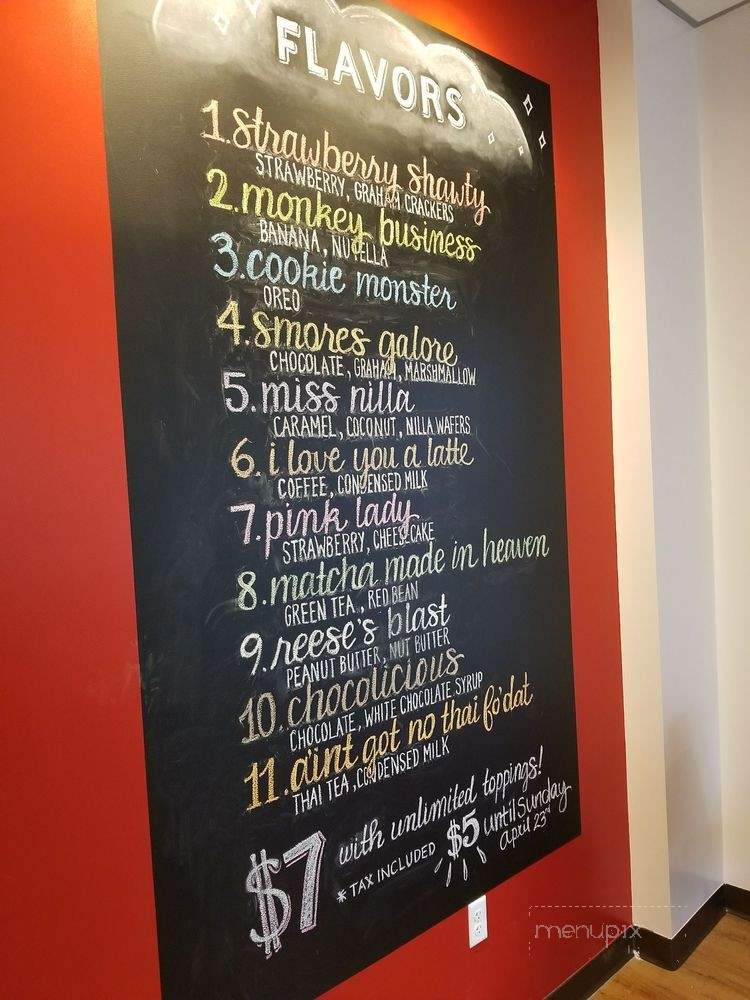 FLAVORS
1. strawberry shawty
STRAWBERRY, GRAHAM CRACKERS
2. monkey business
BANANA, NUTELLA
3. cookie monster
OREO
4. smores galore
CHOCOLATE, GRAHAM, MARSHMALLOW
5. miss nilla
CARAMEL, COCONUT, NILLA WAFERS
6. i love you a latte
COFFEE, CONDENSED MILK
7. pink lady
STRAWBERRY, CHEESECAKE
8. matcha made in heaven
GREEN TEA, RED BEAN
9. reese's blast
PEANUT BUTTER, NUT BUTTER
10. chocolicious
CHOCOLATE, WHITE CHOCOLATE SYRUP
11. ain't got no thai fo'dat
THAI TEA, CONDENSED MILK
$7 with unlimited toppings!
* TAX INCLUDED $5 until Sunday
april 23rd
menupix